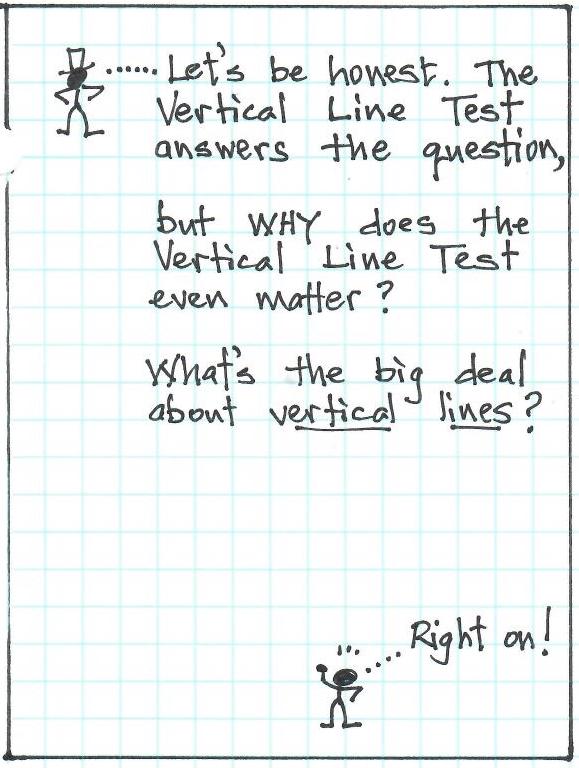 Let's be honest. The
Vertical Line Test
answers the question,
but WHY does the
Vertical Line Test
even matter?
What's the big deal
about vertical lines?
Right on!